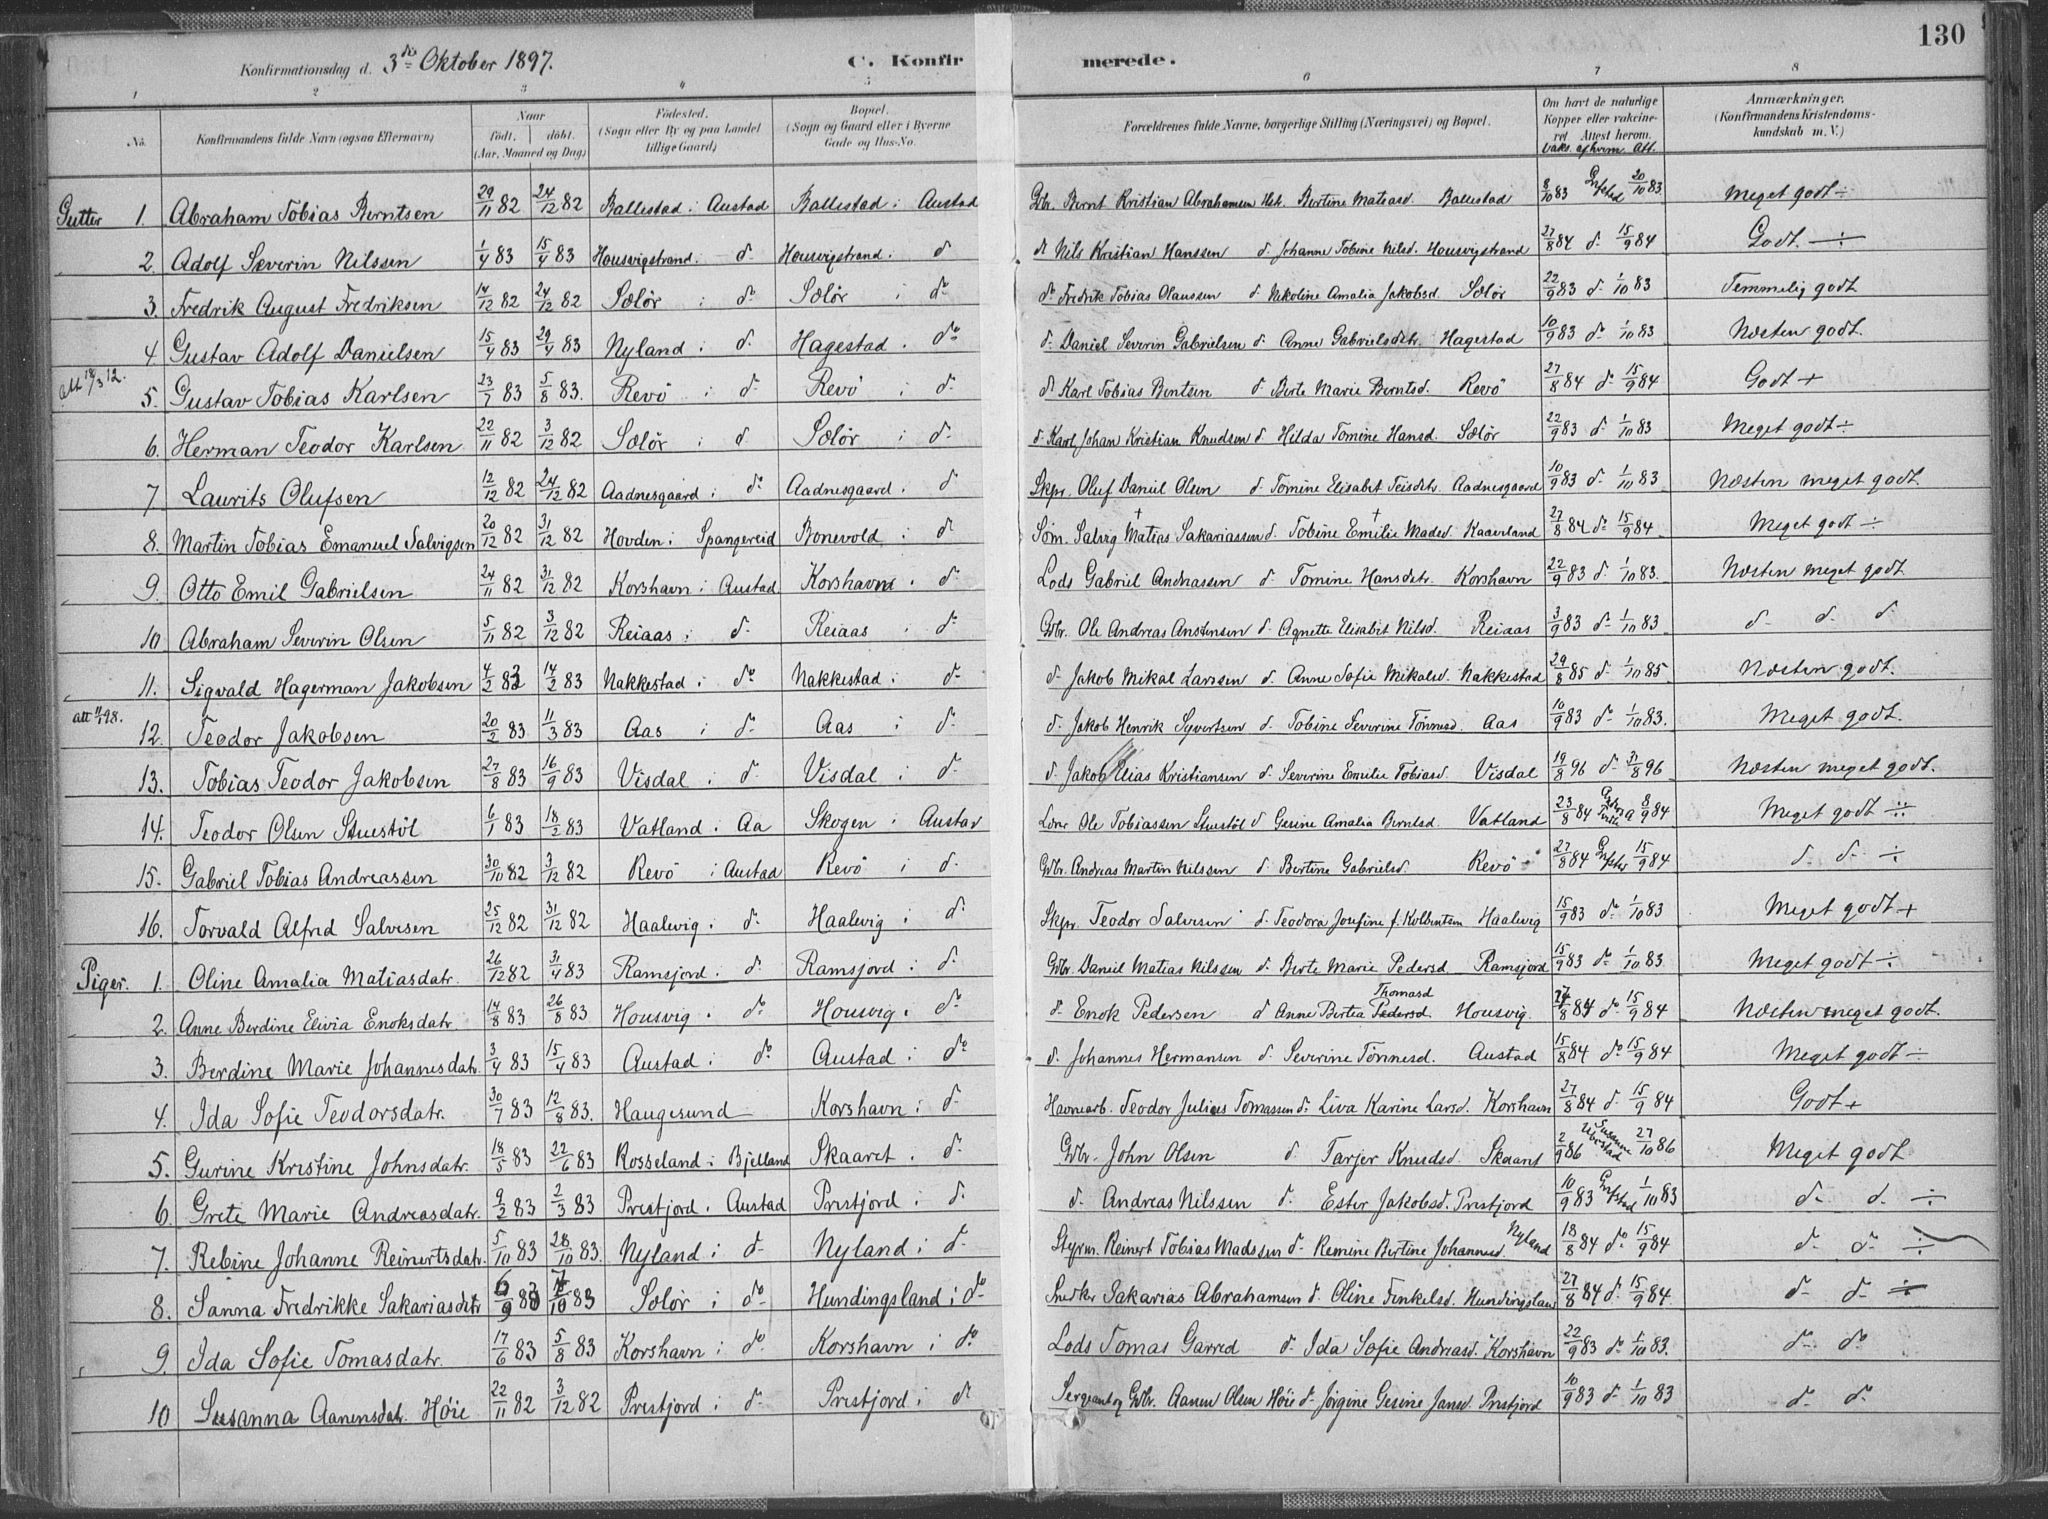 130
Konfirmationsdag d. 3die Oktober 1897. C. Konfirmerede.
1 2 3 4 5 6 7 8
No. Konfirmandens fulde Navn (ogsaa Efternavn) Naar født, døbt. (Aar, Maaned og Dag) Fødested. (Sogn eller By og paa Landet tillige Gaard) Bopæl. (Sogn og Gaard eller i Byerne Gade og Hus-No. Forældrenes fulde Navne, borgerlige Stilling (Næringsvei) og Bopæl. Om havt de naturlige Kopper eller vaccineret Attest herom. Vaks. af hvem Att. Anmærkninger. (Konfirmandens Kristendomskundskab m. V.)
Gutter 1. Abraham Tobias Berntsen 29/11 82 24/12 82 Ballestad i Austad Ballestad i Austad Gbr. Bernt Kristian Abrahamsen Bertine Matiasd. Ballestad 8/10 83 20/10 83 Meget godt ÷
2. Adolf Severin Nilssen 1/4 83 15/4 83 Housvigstrand i do Housvigstrand i do do Nils Kristian Hanssen do Johanne Tobine Nilsd. Housvigstrand 27/8 84 do 15/9 84 Godt ÷
3. Fredrik August Fredriksen 14/12 82 24/12 82 Sælør i do Sælør i do do Fredrik Tobias Olaussen do Nikoline Amalia Jakobsd. Sælør 22/9 83 do 1/10 83 Temmelig godt
4. Gustav Adolf Danielsen 15/4 83 29/4 83 Nyland i do Hagestad i do do Daniel Severin Gabrielsen do Anne Gabrielsdtr. Hagestad 10/9 83 do 1/10 83 Næsten godt.
Att 18/3 12. 5. Gustav Tobias Karlsen 23/7 83 5/8 83. Revö i do Revö i do do Karl Tobias Berntsen do Berte Marie Berntsd. Revö 27/8 84 do 15/9 84 Godt +
6. Herman Teodor Karlsen 22/11 82 3/12 82 Sælør i do Sælør i do do Karl Johan Kristian Knudsen do Hilda Tomine Hansd. Sælør 22/9 83 do 1/10 83 Meget godt ÷
7 Laurits Olufsen 12/12 82 24/12 82 Aadnesgaard i do Aadnesgaard i do Skpr. Oluf Daniel Olsen do Tomine Elisabet Teisdtr. Aadnesgaard 10/9 83 do 1/10 83 Næsten meget godt
8. Martin Tobias Emanuel Salvigsen 20/12 82 31/12 82 Hovden i Spangereid Bonevold i do Søm. Salvig Matias Sakariassen † do Tobine Emilie Madsd. † Kaaverland 27/8 84 do 15/9 84 Meget godt ÷
9. Otto Emil Gabrielsen 24/11 82 31/12 82 Korshavn i Austad Korshavn i do Lods Gabriel Andreassen do Tomine Hansdtr. Korshavn 22/9 83 do 1/10 83. Næsten meget godt
10 Abraham Severin Olsen 5/11 82 3/12 82 Reiaas i do Reiaas i do Gbr. Ole Andreas Anstensen do Agnette Elisabet Nilsd. Reiaas 3/9 83 do 1/10 83 do do do
11. Sigvald Hagerman Jakobsen 4/2 83 14/2 83 Nakkestad i do Nakkestad i do do Jakob Mikal Larssen do Anne Sofie Mikalsd. Nakkestad 29/8 85 do 1/10 85 Næsten godt.
12. Teodor Jakobsen 20/2 83 11/3 83 Aas i do Aas i do do Jakob Henrik Syvertsen do Tobine Severine Tønnesd. Aas 10/9 83 do 1/10 83. Meget godt.
13. Tobias Teodor Jakobsen 27/8 83 16/9 83 Visdal i do Visdal i do do Jakob Elias Kristiansen do Severine Emilie Tobiasd. Visdal 19/8 96 do 31/8 96 Næsten meget godt.
14. Teodor Olsen Stuestöl 6/1 83 18/2 83 Vatland i Aa Skogen i Austad Ole Tobiassen Stuestöl do Gesine Amalia Berntsd. Vatland 23/8 84 8/9 84 Meget godt ÷
15. Gabriel Tobias Andreassen 30/10 82 3/12 82 Revö i Austad Revö i do Gbr. Andreas Martin Nilssen do Bertine Gabrielsd. Revö 27/8 84 15/9 84 do do ÷
16. Torvald Alfred Salvesen 25/12 82 31/12 82 Haalevig i do Haalevig i do Skpr. Teodor Salvesen do Teodora Josefine f. Kolbentsen Haalevig 15/9 83 do 1/10 83 Meget godt +
Piger. 1. Oline Amalia Matiasdatr. 26/12 82 31/4 83 Ramsjord i do Ramsjord i do Gbr. Daniel Matias Nilssen do Berte Marie Pedersd Ramsjord 15/9 83 do 1/10 83 Meget godt ÷
2. Anne Berdine Elivia Enoksdatr 14/8 83 26/8 83 Housvig i do Housvig i do do Enok Pedersen do Anne Bertea Pedersd. Thomasd Housvig 27/8 84 do 15/9 84 Næsten meget godt.
3. Berdine Marie Johannesdatr. 3/4 83 15/4 83 Austad i do Austad i do do Johannes Hermansen do Severine Tønnesd. Austad 15/8 84 do 15/9 84 Meget godt ÷
4. Ida Sofie Teodorsdatr. 30/7 83 12/8 83. Haugesund Korshavn i do Havnearb. Teodor Julius Tomassen do Liva Karine Larsd. Korshavn 27/8 84 do 15/9 84 Godt +
5. Gurine Kristine Johnsdatr. 18/5 83 22/6 83 Rosseland i Bjelland Skaaret i do Gbr. John Olsen do Tarjer Knudsd. Skaaret 2/9 86 27/10 86 Meget godt
6. Grete Marie Andreasdatr. 9/2 83 2/3 83 Prestjord i Austad Prestjord i do do Andreas Nilssen do Ester Jakobsd. Prestjord 10/9 83 1/10 83 do do ÷
7. Rebine Johanne Reinertsdatr. 5/10 83 28/10 83. Nyland i do Nyland i do Styrm. Reinert Tobias Madssen do Remine Bertine Johannesd. Nyland 18/8 84 do 15/9 84 do do ÷
8. Sanna Fredrikke Sakariasdtr 6/9 83 7/10 83 Sælør i do Hundingsland i do Snedker Sakarias Abrahamsen do Oline Tinkelsd. Hundingsland 27/8 84 do 15/9 84. do do ÷
9. Ida Sofie Tomasdatr. 17/6 83 5/8 83 Korshavn i do Korshavn i do Lods Tomas Garred do Ida Sofie Andreasd. Korshavn 22/9 83 do 1/10 83. do do
10 Susanna Aanensdatr. Høie 22/11 82 3/12 82 Prestjord i do Prestjord i do Sergeant og Gbr. Aanen Olsen Høie do Jørgine Gesine Jansd. Prestjord 10/9 83 do 1/10 83 do do